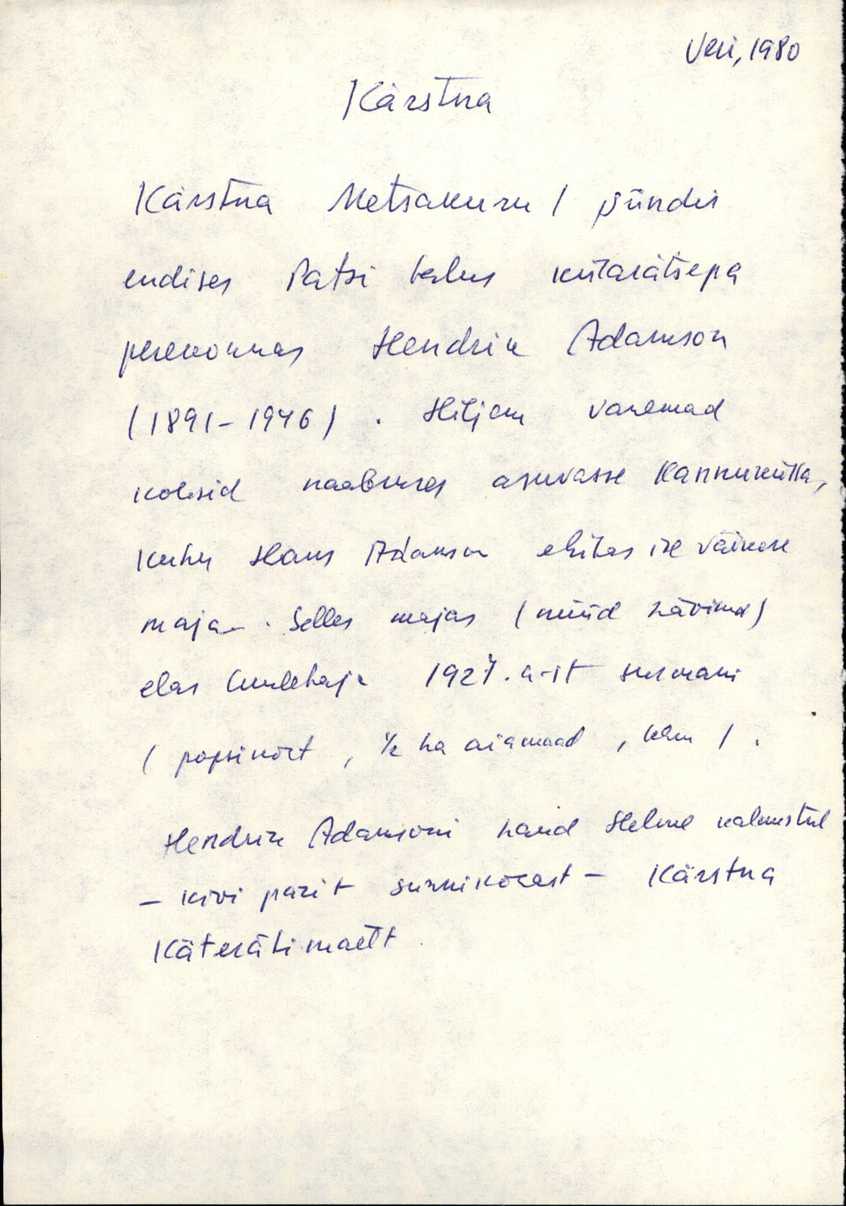 Veri, 1980
Kärstna
Kärstna Metsakuru / sündis
endises Patsi talus külarätsepa
perekonnas Hendrik Adamson
(1891-1946). Hiljem vanemad
kolisid naabruses asuvasse Kannuküla,
kuhu Hans Adamson ehitas ise väikese
maja. Selles majas (nüüd hävinud)
elas luuletaja 1927. a-st surmani
(popsikoht, ½ ha aiamaad, lehm).
Hendrik Adamsoni haud Helme kalmistul
- kivi pärit sünnikohast - Kärstna
Käterätimäelt